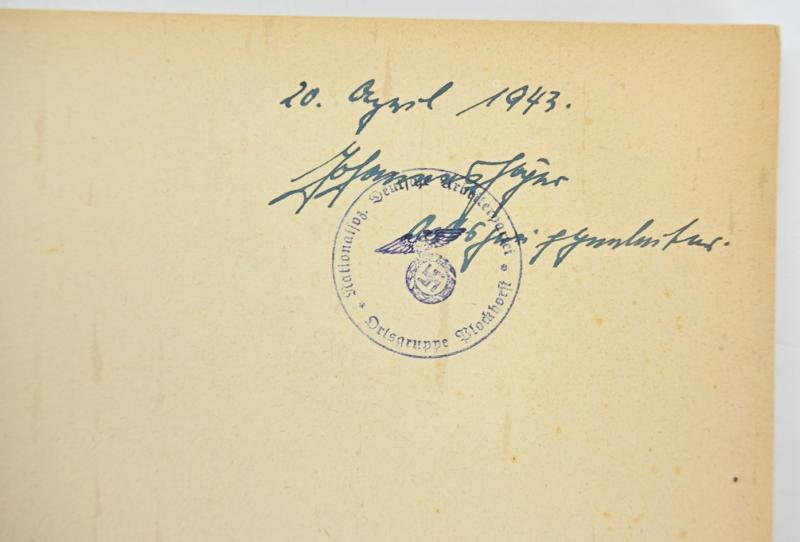 20. April 1943.
Johannes
Ortsgruppenleiter.
Nationalsoz. Deutsche Arbeiterpartei
* Ortsgruppe Blockhorst *